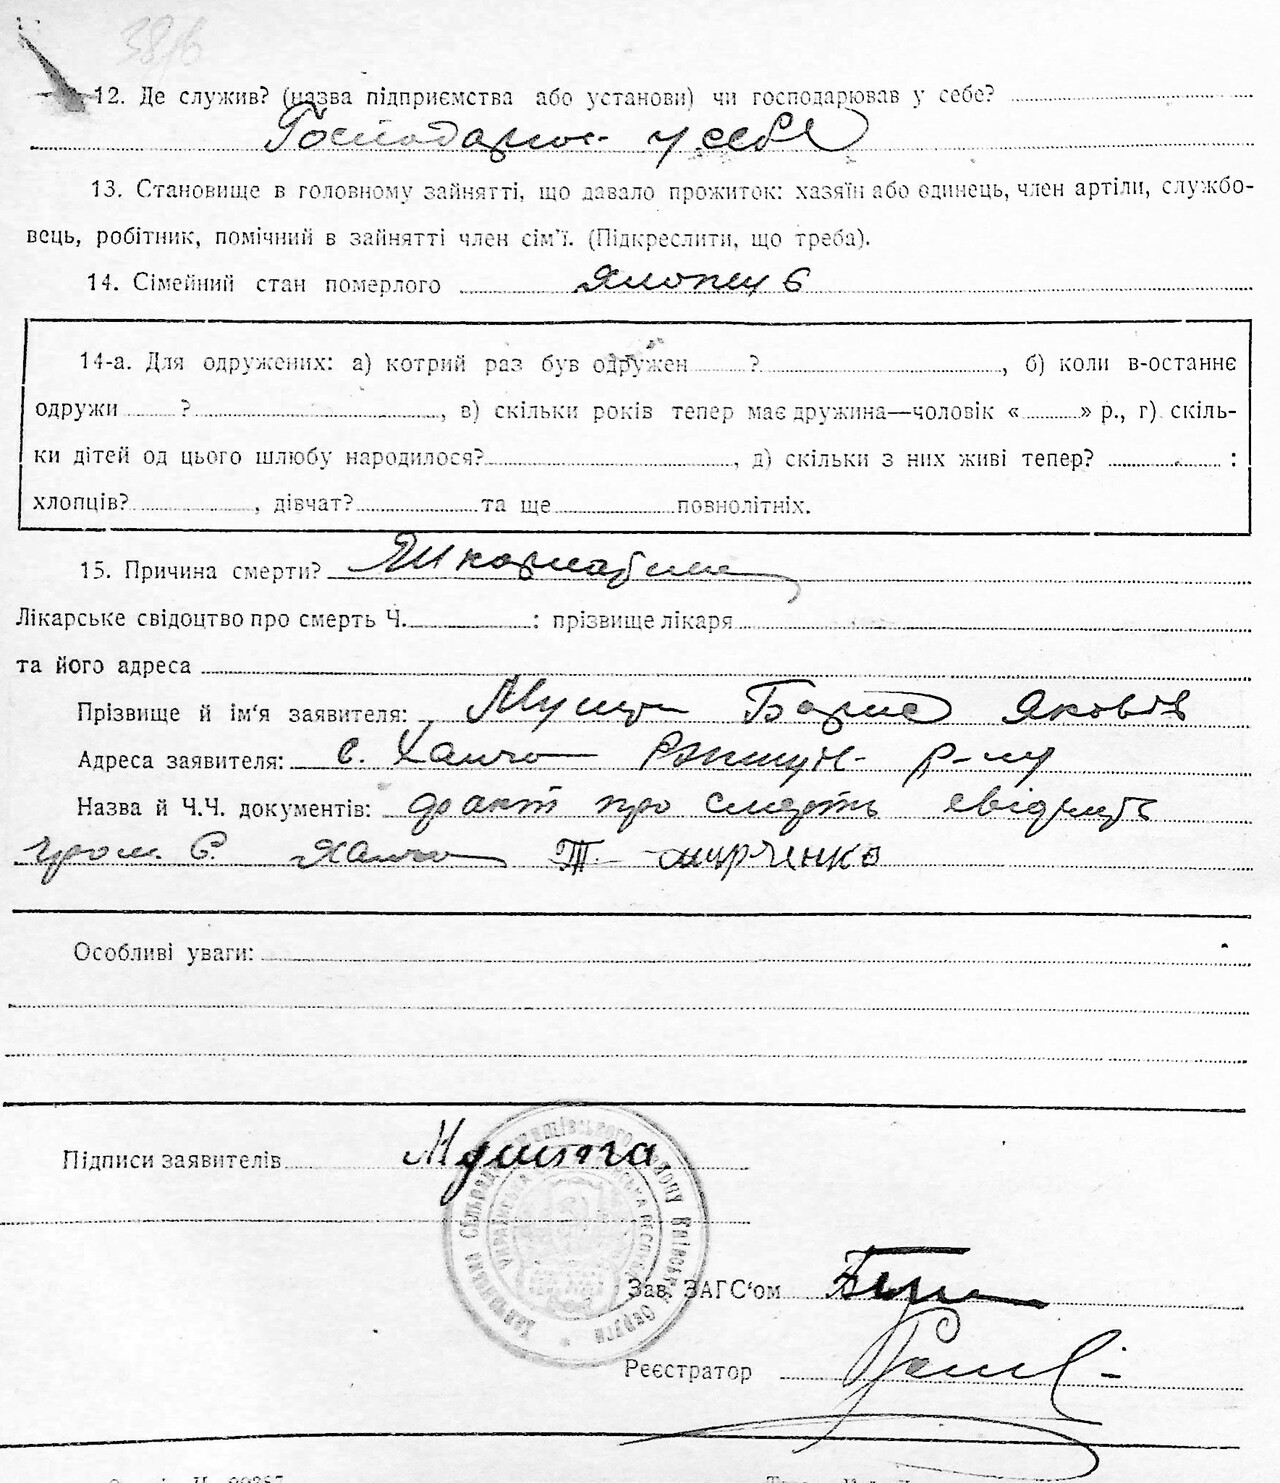 38/6
12. Де служив? (назва підприємства або установи) чи господарював у себе?
Господарює у себе
13. Становище в головному зайнятті, що давало прожиток: хазяїн або одинець, член артіли, службо-
вець, робітник, помічний в зайнятті член сім'ї. (Підкреслити, що треба).
14. Сімейний стан померлого
14-а. Для одружених: а) котрий раз був одружен ? , б) коли в-останнє
одружи ? , в) скільки років тепер має дружина—чоловік « » р., г) скіль-
ки дітей од цього шлюбу народилося? , д) скільки з них живі тепер? :
хлопців? , дівчат? та ще повнолітніх.
15. Причина смерти?
Лікарське свідоцтво про смерть Ч. : прізвище лікаря
та його адреса
Прізвище й ім'я заявителя: Борис Яковів
Адреса заявителя: с. р-ну
Назва й Ч.Ч. документів: факт про смерть свідчить
гром. с. Т.
Особливі уваги:
Підписи заявителів
Зав. ЗАГС'ом
Реєстратор